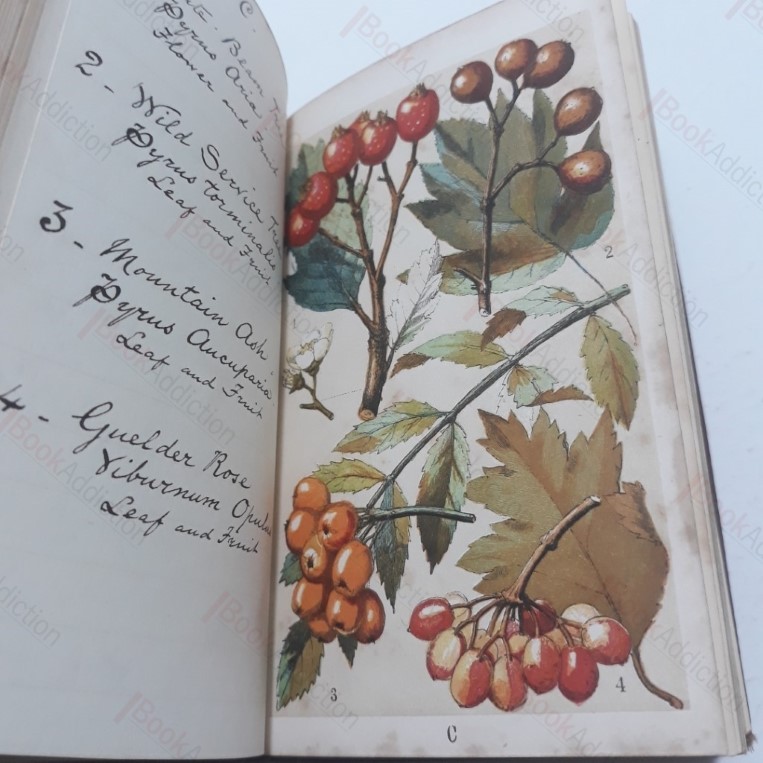 C.
Beam
Pyrus Aria
Flower and Fruit
2 - Wild Service Tree
Pyrus torminalis
Leaf and Fruit
3 - Mountain Ash
Pyrus Aucuparia
Leaf and Fruit
4 - Guelder Rose
Viburnum Opulus
Leaf and Fruit
2
3
4
C
BookAddiction